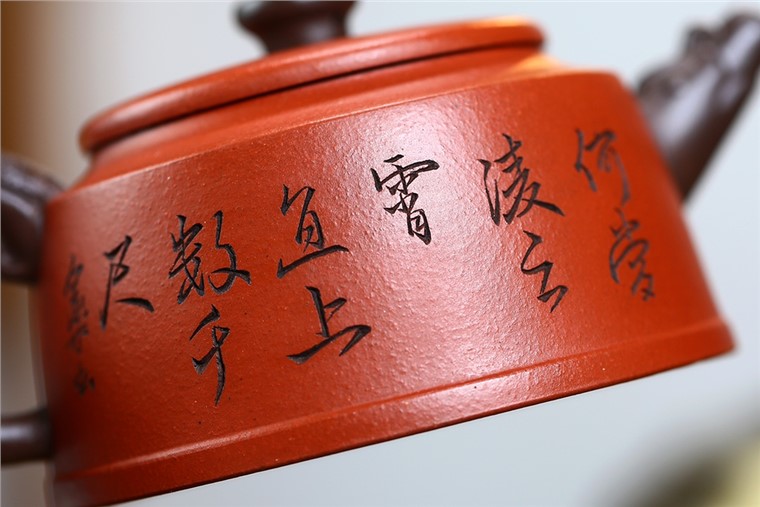 何當
凌云
霄
直上
数千
尺